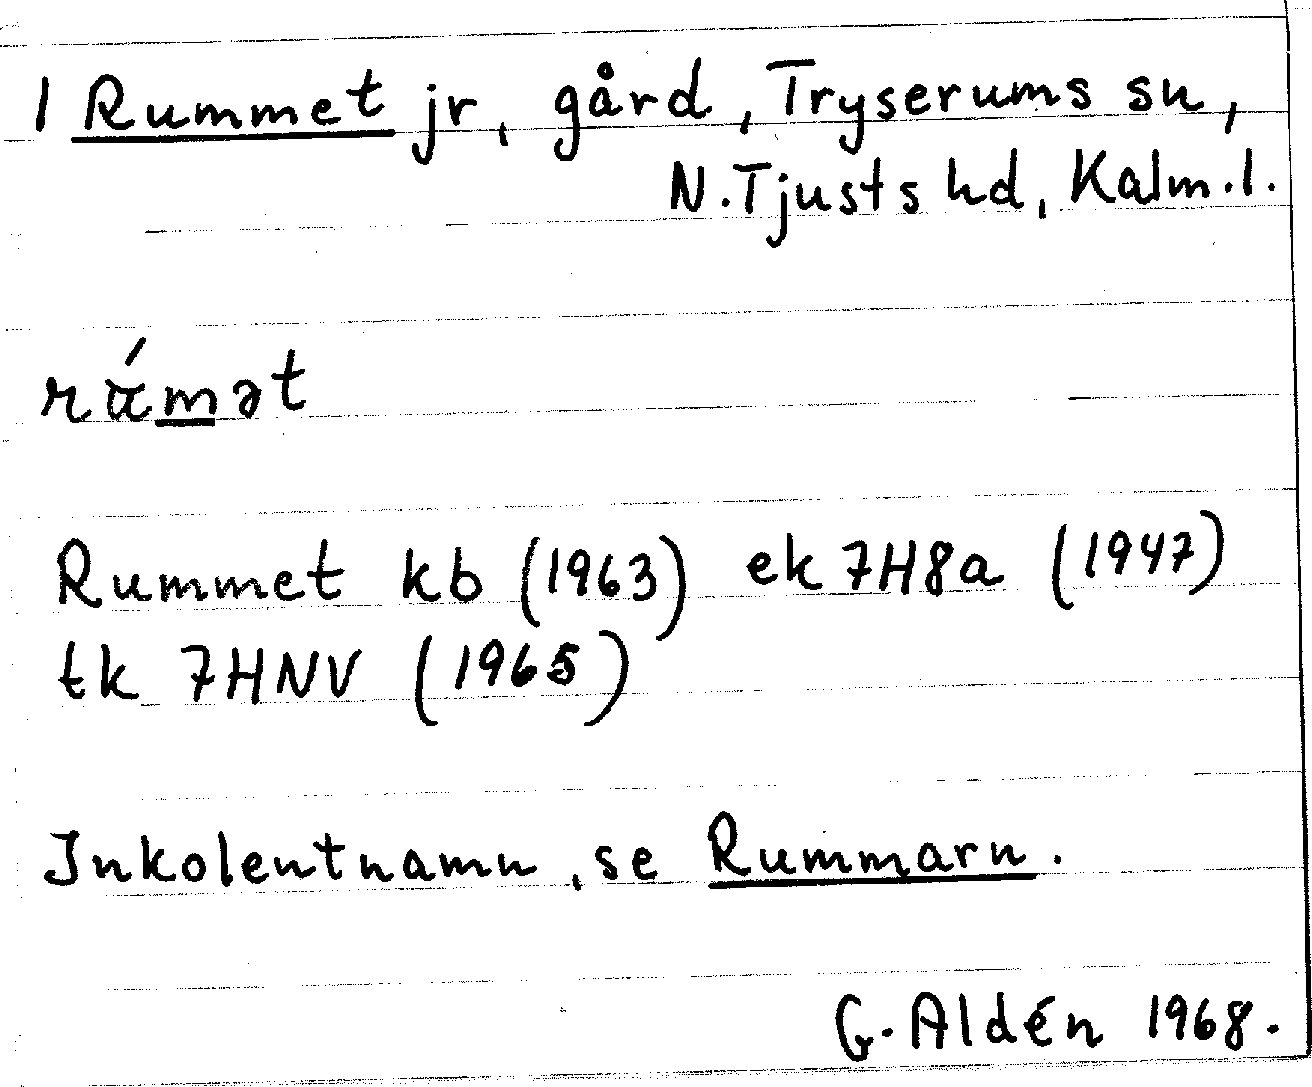 1 Rummet jr, gård, Tryserums sn,
N. Tjusts hd, Kalm. l.
rά́mət
Rummet kb (1963) ek 7H8a (1947)
tk 7HNV (1965)
Inkolentnamn, se Rummarn.
G. Aldén 1968.